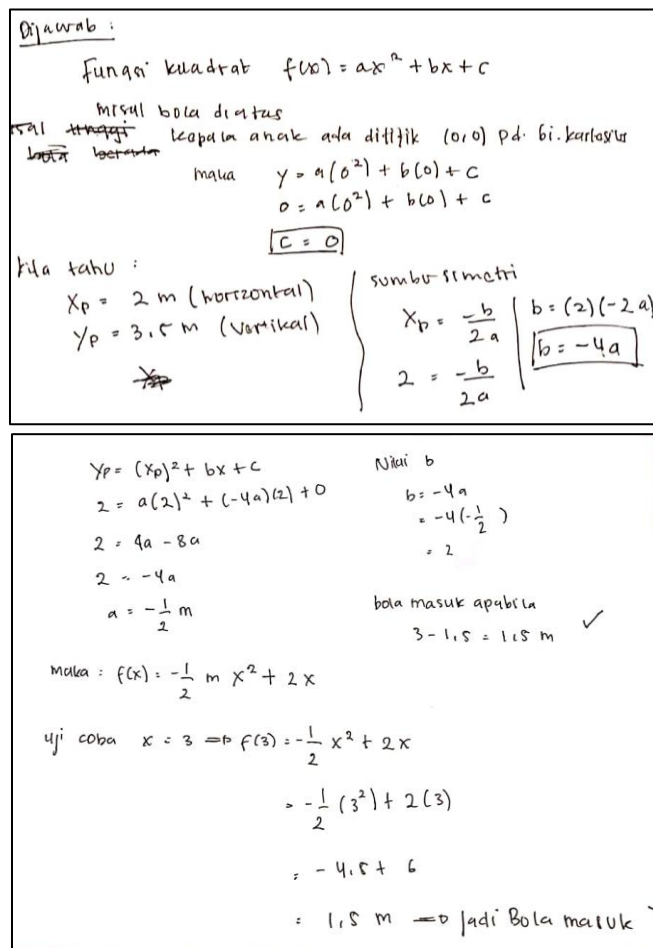 Dijawab :
Fungsi kuadrat f(x) = ax² + bx + c
misal bola diatas
kepala anak ada dititik (0,0) pd. bi. kartesius
maka y = a(0²) + b(0) + c
0 = a(0²) + b(0) + c
c = 0
kita tahu :
Xp = 2 m (horizontal)
Yp = 3,5 m (Vertikal)
sumbu simetri
Xp = -b/2a
2 = -b/2a
b = (2)(-2a)
b = -4a
Yp = (Xp)² + bx + c
2 = a(2)² + (-4a)(2) + 0
2 = 4a - 8a
2 = -4a
a = -1/2 m
Nilai b
b = -4a
= -4(-1/2)
= 2
bola masuk apabila
3 - 1,5 = 1,5 m ✓
maka : f(x) = -1/2 m x² + 2x
uji coba x = 3 => f(3) = -1/2 x² + 2x
= -1/2 (3²) + 2(3)
= - 4,5 + 6
= 1,5 m => Jadi Bola masuk